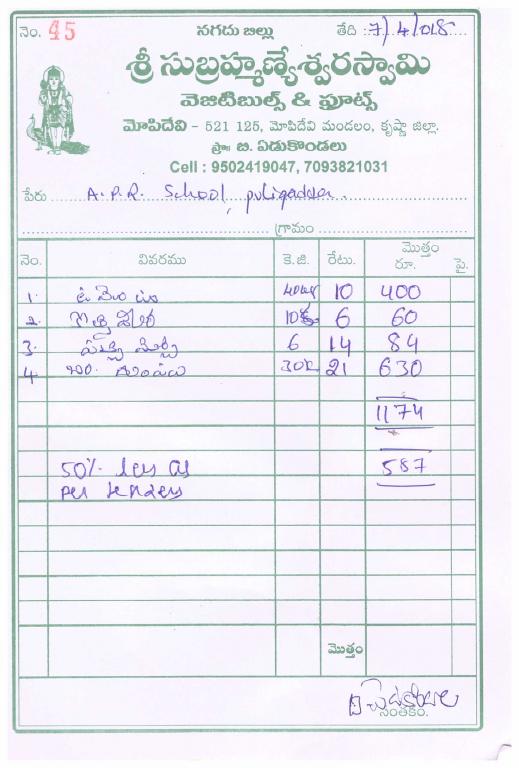 నెం. 45 నగదు బిల్లు తేది : 7/4/2018
శ్రీ సుబ్రహ్మణ్యేశ్వరస్వామి
వెజిటిబుల్స్ & ఫ్రూట్స్
మోపిదేవి – 521 125, మోపిదేవి మండలం, కృష్ణా జిల్లా.
ప్రొః బి. ఏడుకొండలు
Cell : 9502419047, 7093821031
పేరు A.P.R. School, puligadda.
గ్రామం
నెం. వివరము కె.జి. రేటు. మొత్తం రూ. పై.
1. 40kg 10 400
2. 10k 6 60
3. 6 14 84
4 30k 21 630
1174
50% less as 587
per tenders
మొత్తం
సంతకం.